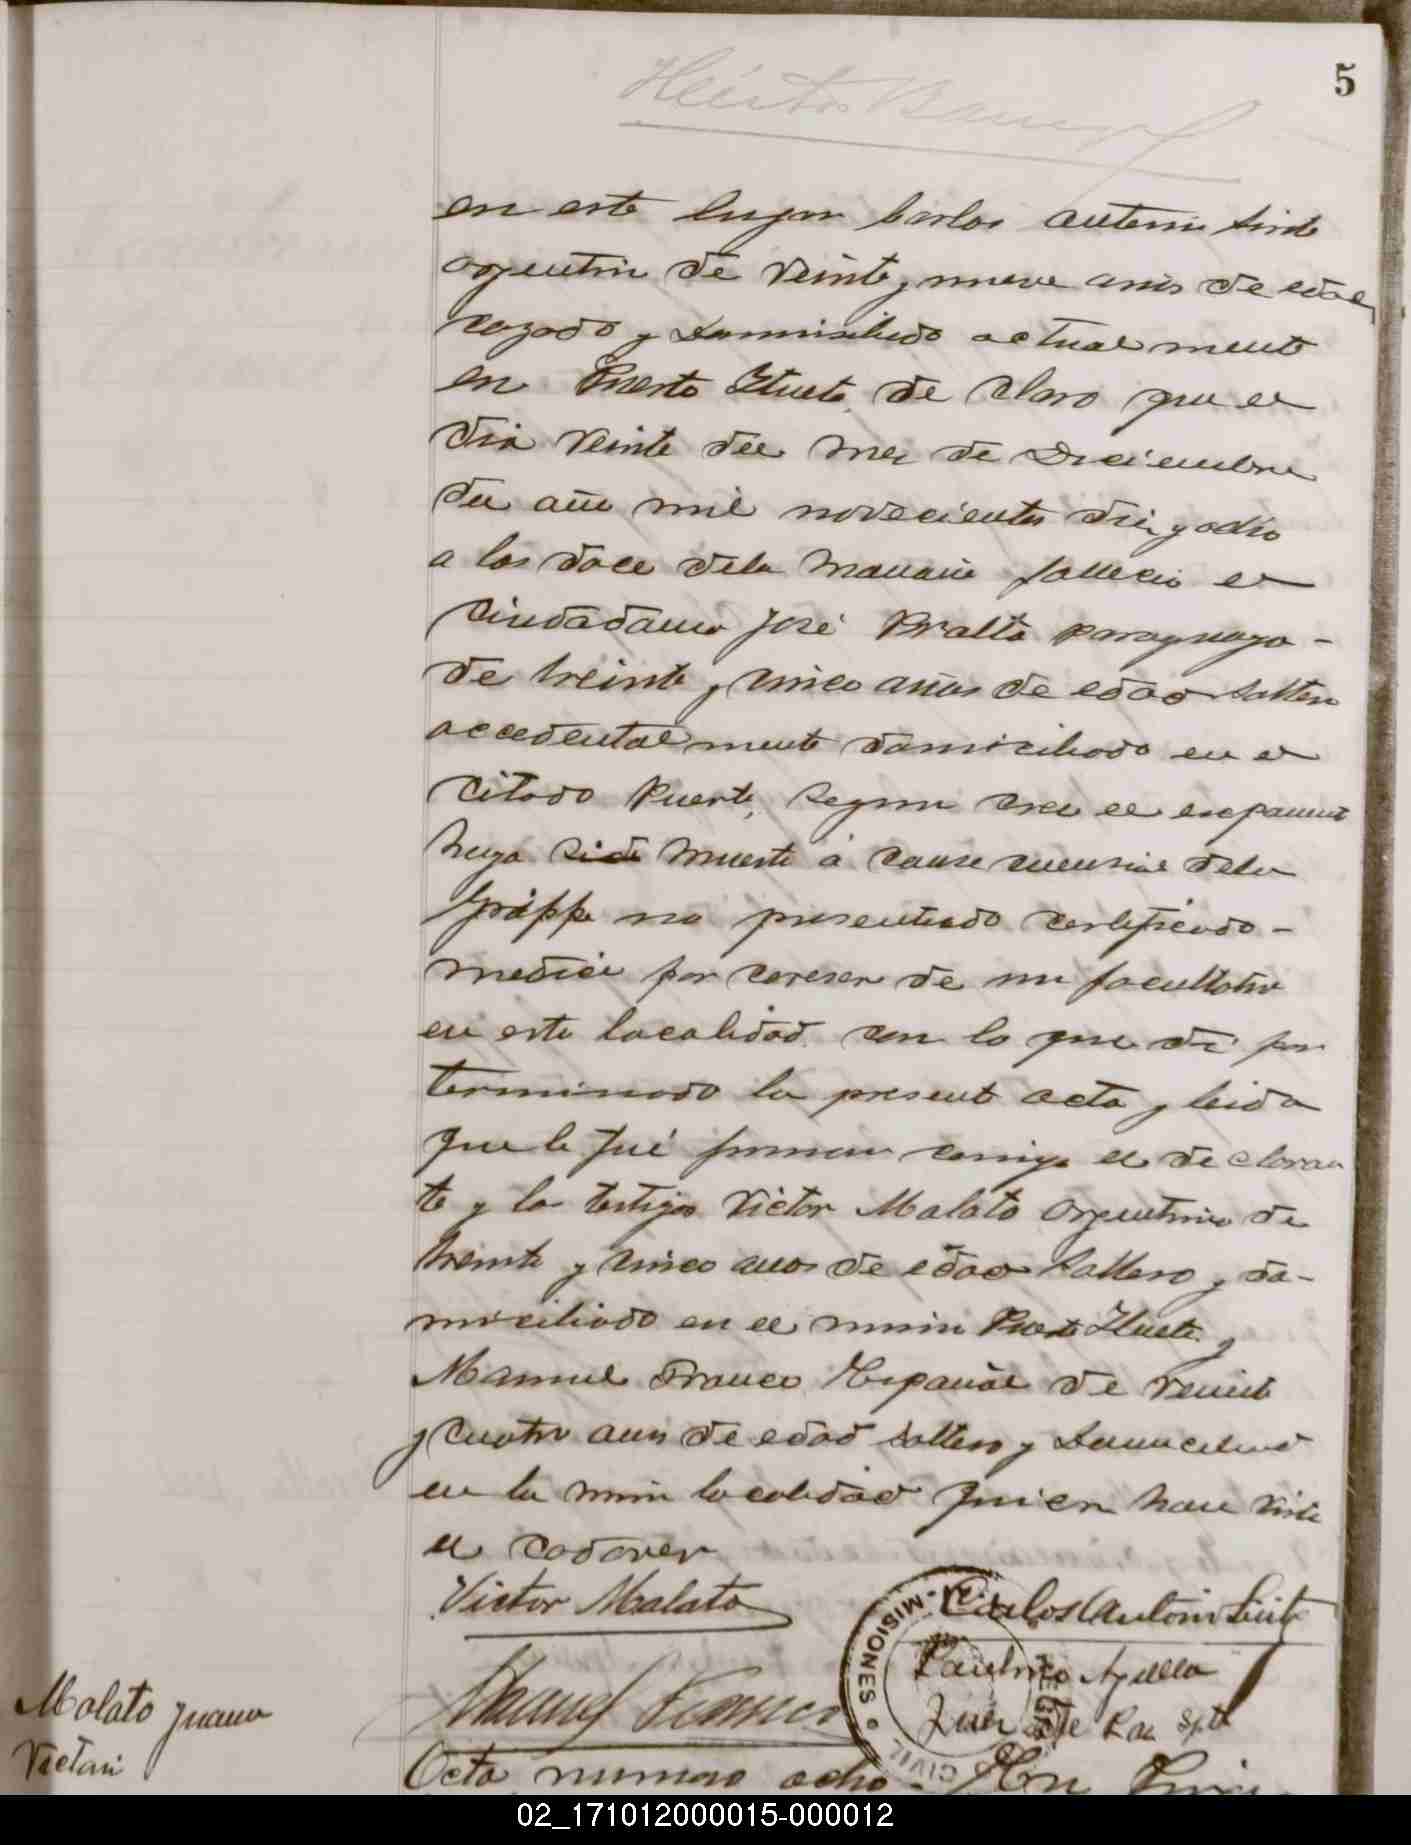 5
en este lugar Carlos Antonio
argentin de veinte y nueve anis de edad
cazado y domisiliado actualmente
en Puerto Ituete, de claro que el
dia veinte del mes de Diciembre
del año mil novecientos diez y ocho
a las doce dela mañana fallecio el
ciudadano José Pralta paraguayo -
de treinta y cinco años de edad soltero
accedentalmente domiciliado en el
citado Puerto, segun cree el
haya sido muerte á causa dela
Grippe no presentado certificado -
medico por careser de un facultativo
en esta localidad con lo que dí por
terminado la presente acta y leida
que le fué firman comigo el de claran
te y los testigos Victor Malato Argentino de
treinta y cinco anos de edad soltero y do-
miciliado en el mismo Puerto Ituete y
Manuel Franco Español de veinte
y cuatro anos de edad soltero y
en la misma localidad quien han visto
el cadaver
Victor Malato
Carlos Antonio
Manuel Franco
Juez de Paz Spte
MISIONES
CIVIL
Malato Juana
Victori
Octa numero ocho - En
02_171012000015-000012